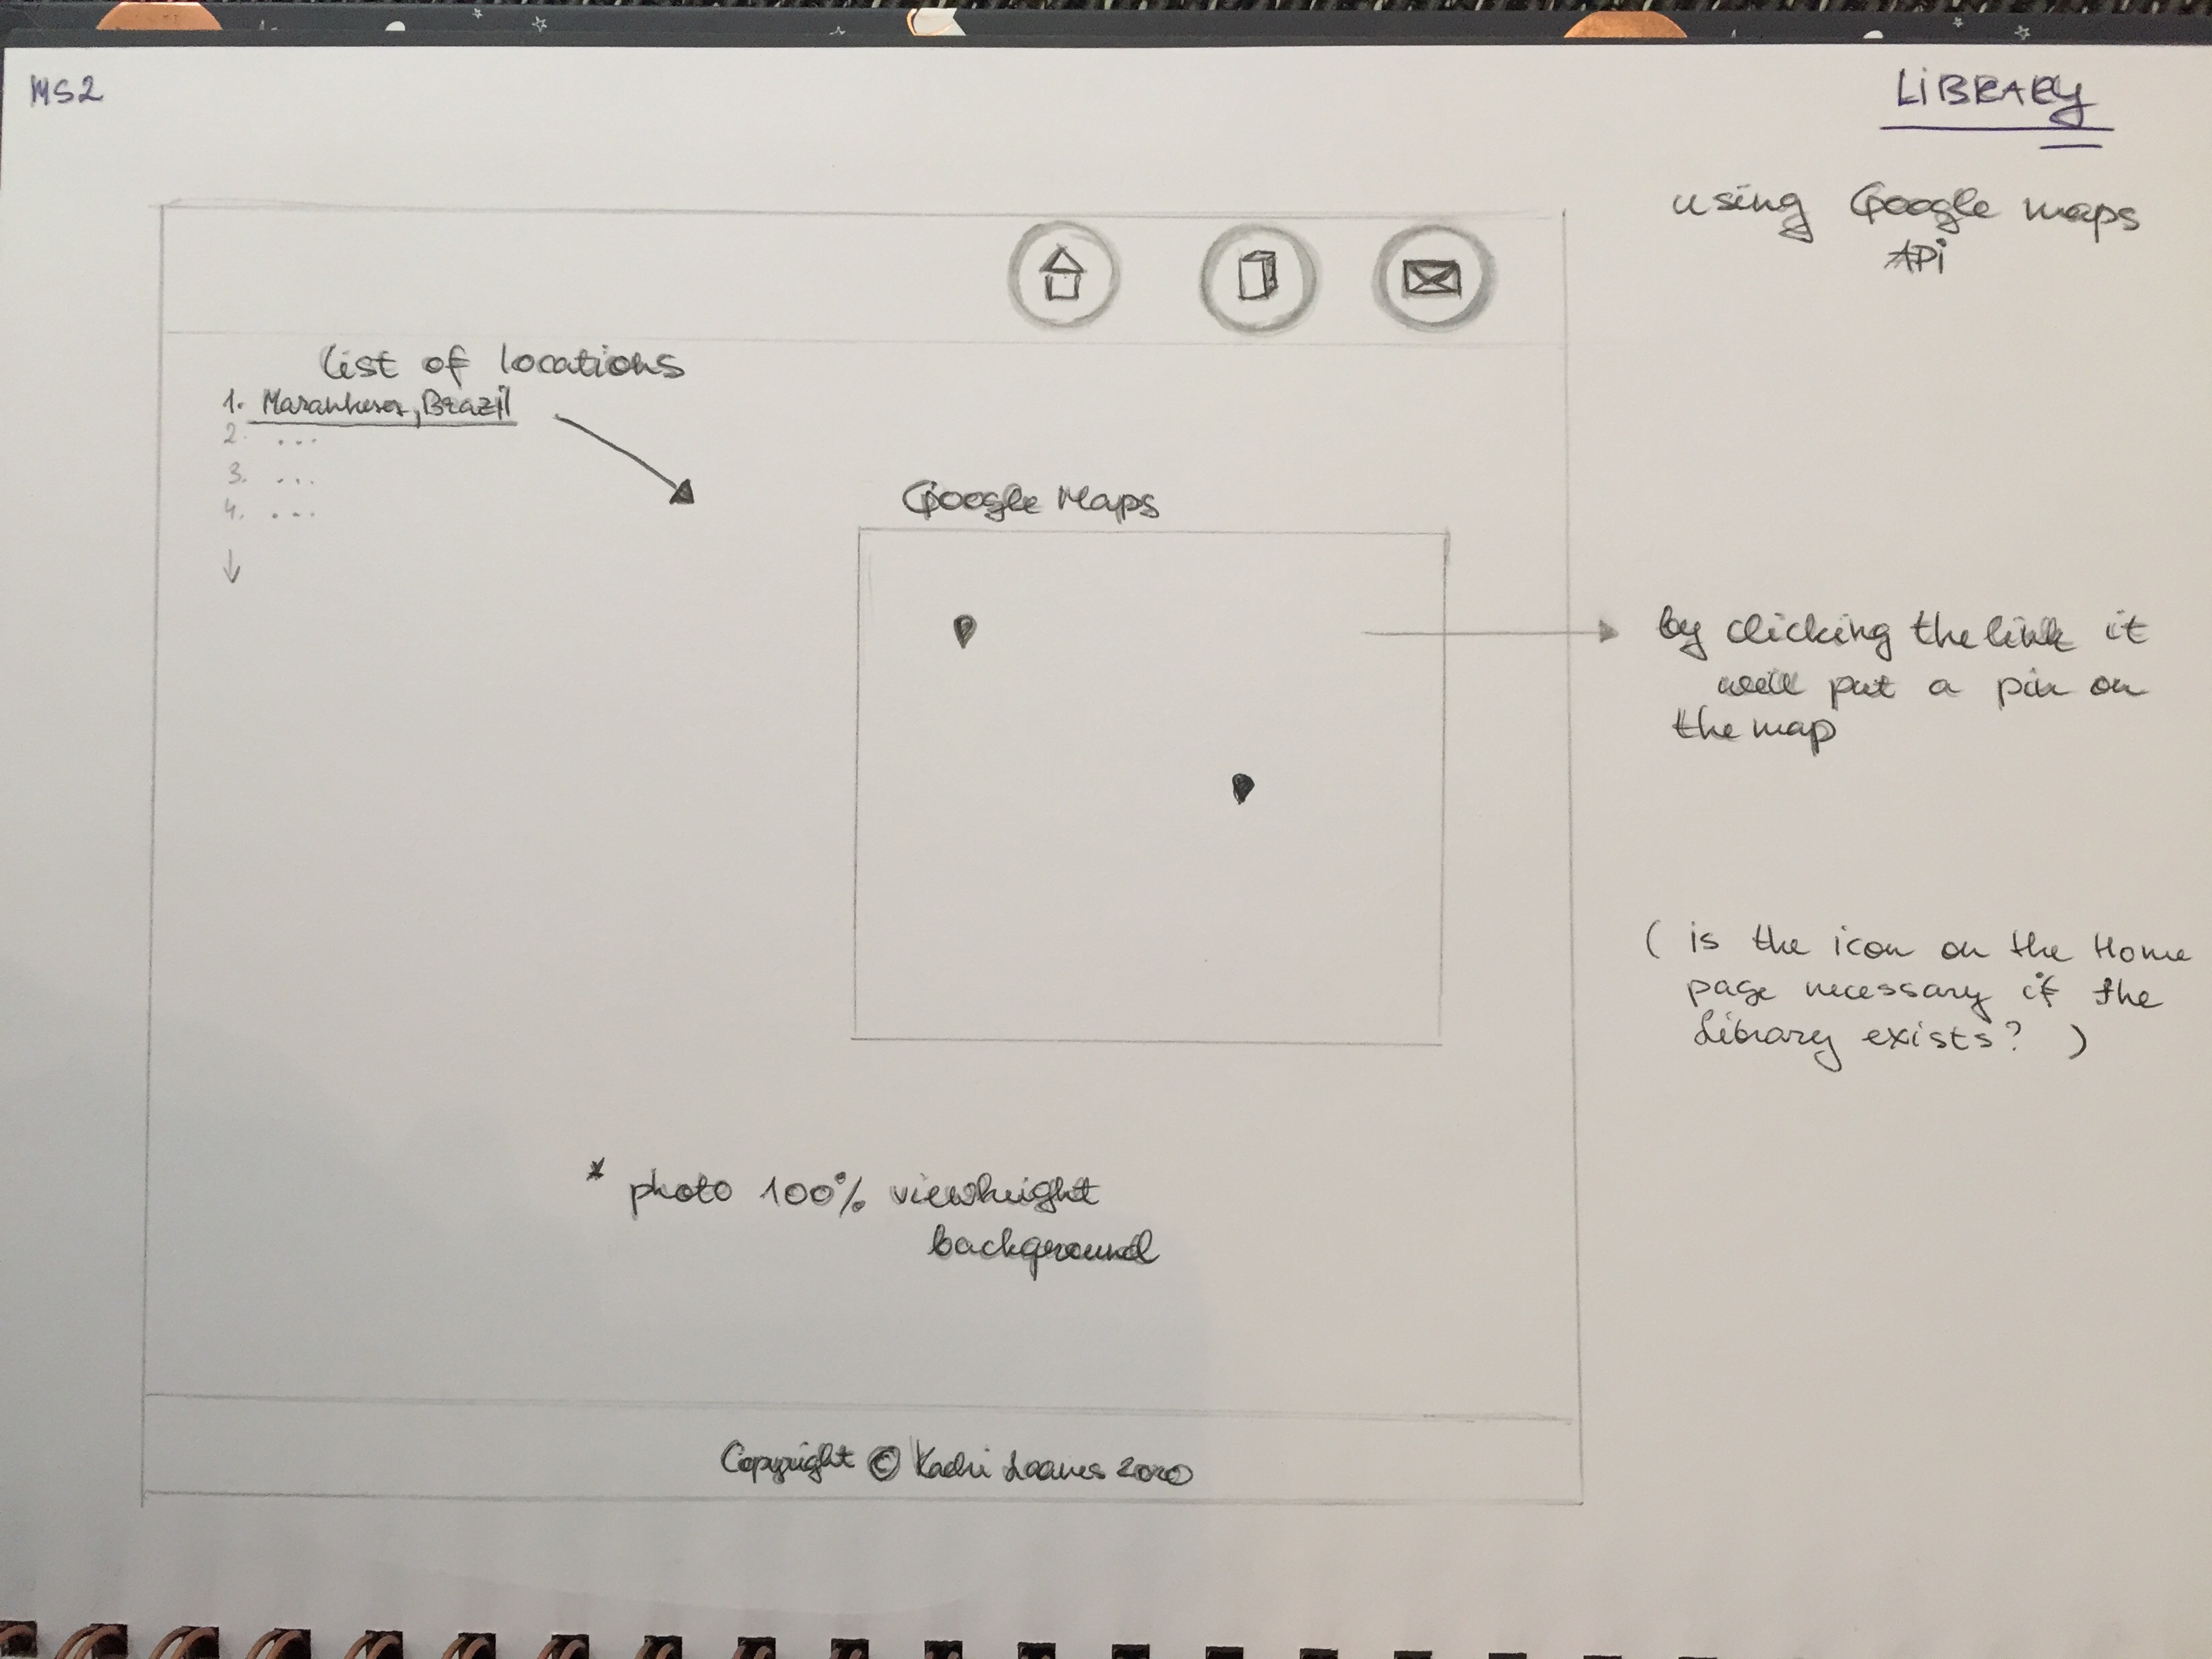 MS2
LiBRARY
using Google maps
APi
List of locations
1. , Brazil
2. ...
3. ...
4. ...
Google Maps
by clicking the link it
will put a pin on
the map
( is the icon on the Home
page necessary if the
Library exists? )
* photo 100% viewheight
background
Copyright © Kadri Laanes 2020